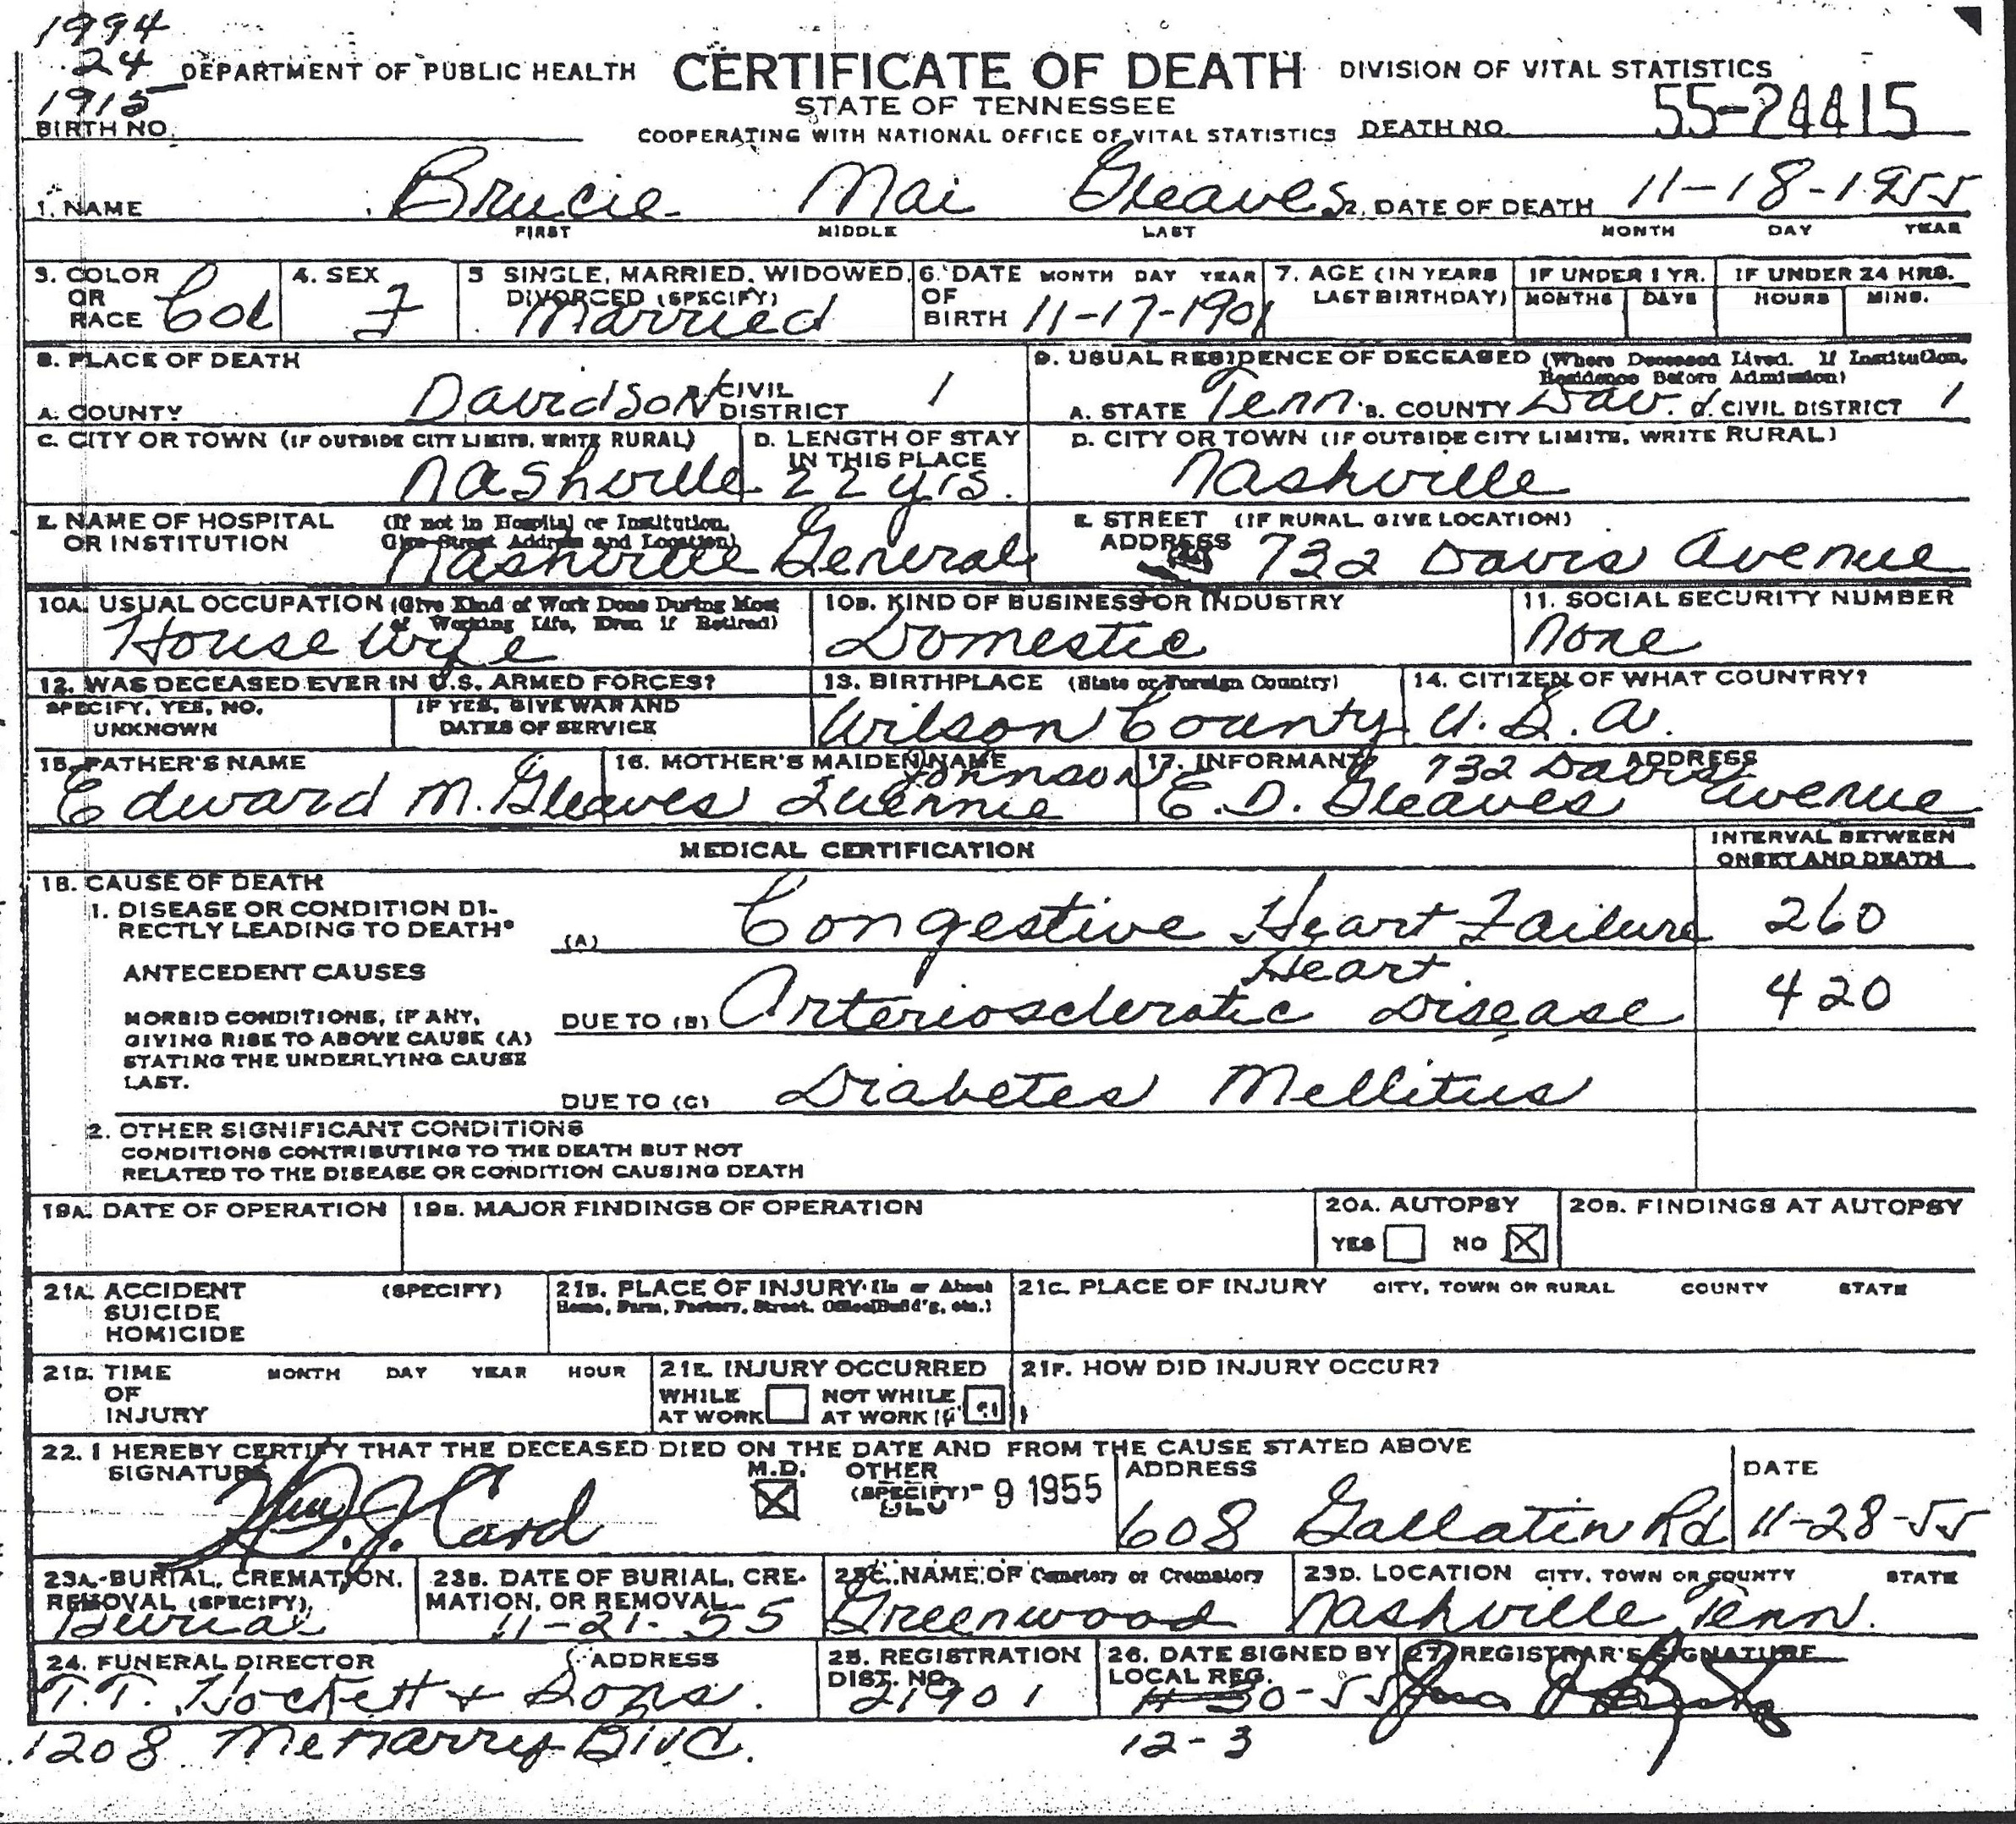 1994
24
DEPARTMENT OF PUBLIC HEALTH CERTIFICATE OF DEATH DIVISION OF VITAL STATISTICS
1915
STATE OF TENNESSEE 55-24415
BIRTH NO. COOPERATING WITH NATIONAL OFFICE OF VITAL STATISTICS DEATH NO.
1. NAME Brucie Mai Gleaves 2. DATE OF DEATH 11-18-1955
FIRST MIDDLE LAST MONTH DAY YEAR
3. COLOR OR RACE Col 4. SEX F 5 SINGLE, MARRIED, WIDOWED, DIVORCED (SPECIFY) Married 6. DATE OF BIRTH MONTH DAY YEAR 11-17-1901 7. AGE (IN YEARS LAST BIRTHDAY) IF UNDER 1 YR. MONTHS DAYS IF UNDER 24 HRS. HOURS MINS.
8. PLACE OF DEATH
A. COUNTY Davidson CIVIL DISTRICT 1
9. USUAL RESIDENCE OF DECEASED (Where Deceased Lived. If Institution, Residence Before Admission)
A. STATE Tenn. B. COUNTY Dav. C. CIVIL DISTRICT 1
C. CITY OR TOWN (IF OUTSIDE CITY LIMITS, WRITE RURAL) Nashville D. LENGTH OF STAY IN THIS PLACE 22 yrs.
D. CITY OR TOWN (IF OUTSIDE CITY LIMITS, WRITE RURAL) Nashville
E. NAME OF HOSPITAL OR INSTITUTION (If not in Hospital or Institution, Give Street Address and Location) Nashville General
E. STREET ADDRESS (IF RURAL GIVE LOCATION) 732 Davis Avenue
10A. USUAL OCCUPATION (Give Kind of Work Done During Most of Working Life, Even if Retired) House wife
10B. KIND OF BUSINESS OR INDUSTRY Domestic
11. SOCIAL SECURITY NUMBER None
12. WAS DECEASED EVER IN U.S. ARMED FORCES?
SPECIFY, YES, NO, UNKNOWN IF YES, GIVE WAR AND DATES OF SERVICE
13. BIRTHPLACE (State or Foreign Country) Wilson County
14. CITIZEN OF WHAT COUNTRY? U.S.A.
15. FATHER'S NAME Edward M. Gleaves
16. MOTHER'S MAIDEN NAME Johnson
17. INFORMANT E.D. Gleaves ADDRESS 732 Davis Avenue
MEDICAL CERTIFICATION INTERVAL BETWEEN ONSET AND DEATH
18. CAUSE OF DEATH
1. DISEASE OR CONDITION DIRECTLY LEADING TO DEATH* (A) Congestive Heart Failure 260
ANTECEDENT CAUSES
MORBID CONDITIONS, IF ANY, GIVING RISE TO ABOVE CAUSE (A) STATING THE UNDERLYING CAUSE LAST.
DUE TO (B) Arteriosclerotic Heart Disease 420
DUE TO (C) Diabetes Mellitus
2. OTHER SIGNIFICANT CONDITIONS
CONDITIONS CONTRIBUTING TO THE DEATH BUT NOT
RELATED TO THE DISEASE OR CONDITION CAUSING DEATH
19A. DATE OF OPERATION 19B. MAJOR FINDINGS OF OPERATION 20A. AUTOPSY YES NO 20B. FINDINGS AT AUTOPSY
21A. ACCIDENT SUICIDE HOMICIDE (SPECIFY)
21B. PLACE OF INJURY (In or About Home, Farm, Factory, Street, Office Build'g, etc.)
21C. PLACE OF INJURY CITY, TOWN OR RURAL COUNTY STATE
21D. TIME OF INJURY MONTH DAY YEAR HOUR
21E. INJURY OCCURRED WHILE AT WORK NOT WHILE AT WORK
21F. HOW DID INJURY OCCUR?
22. I HEREBY CERTIFY THAT THE DECEASED DIED ON THE DATE AND FROM THE CAUSE STATED ABOVE
SIGNATURE Wm. J. Card M.D. OTHER (SPECIFY) 9 1955 ADDRESS 608 Gallatin Rd DATE 11-28-55
23A. BURIAL, CREMATION, REMOVAL (SPECIFY) Burial
23B. DATE OF BURIAL, CREMATION, OR REMOVAL 11-21-55
23C. NAME OF Cemetery or Crematory Greenwood
23D. LOCATION CITY, TOWN OR COUNTY STATE Nashville Tenn.
24. FUNERAL DIRECTOR ADDRESS T.T. Hockett & Sons.
25. REGISTRATION DIST. NO. 21901
26. DATE SIGNED BY LOCAL REG. 11-30-55
27. REGISTRAR'S SIGNATURE
1208 12-3